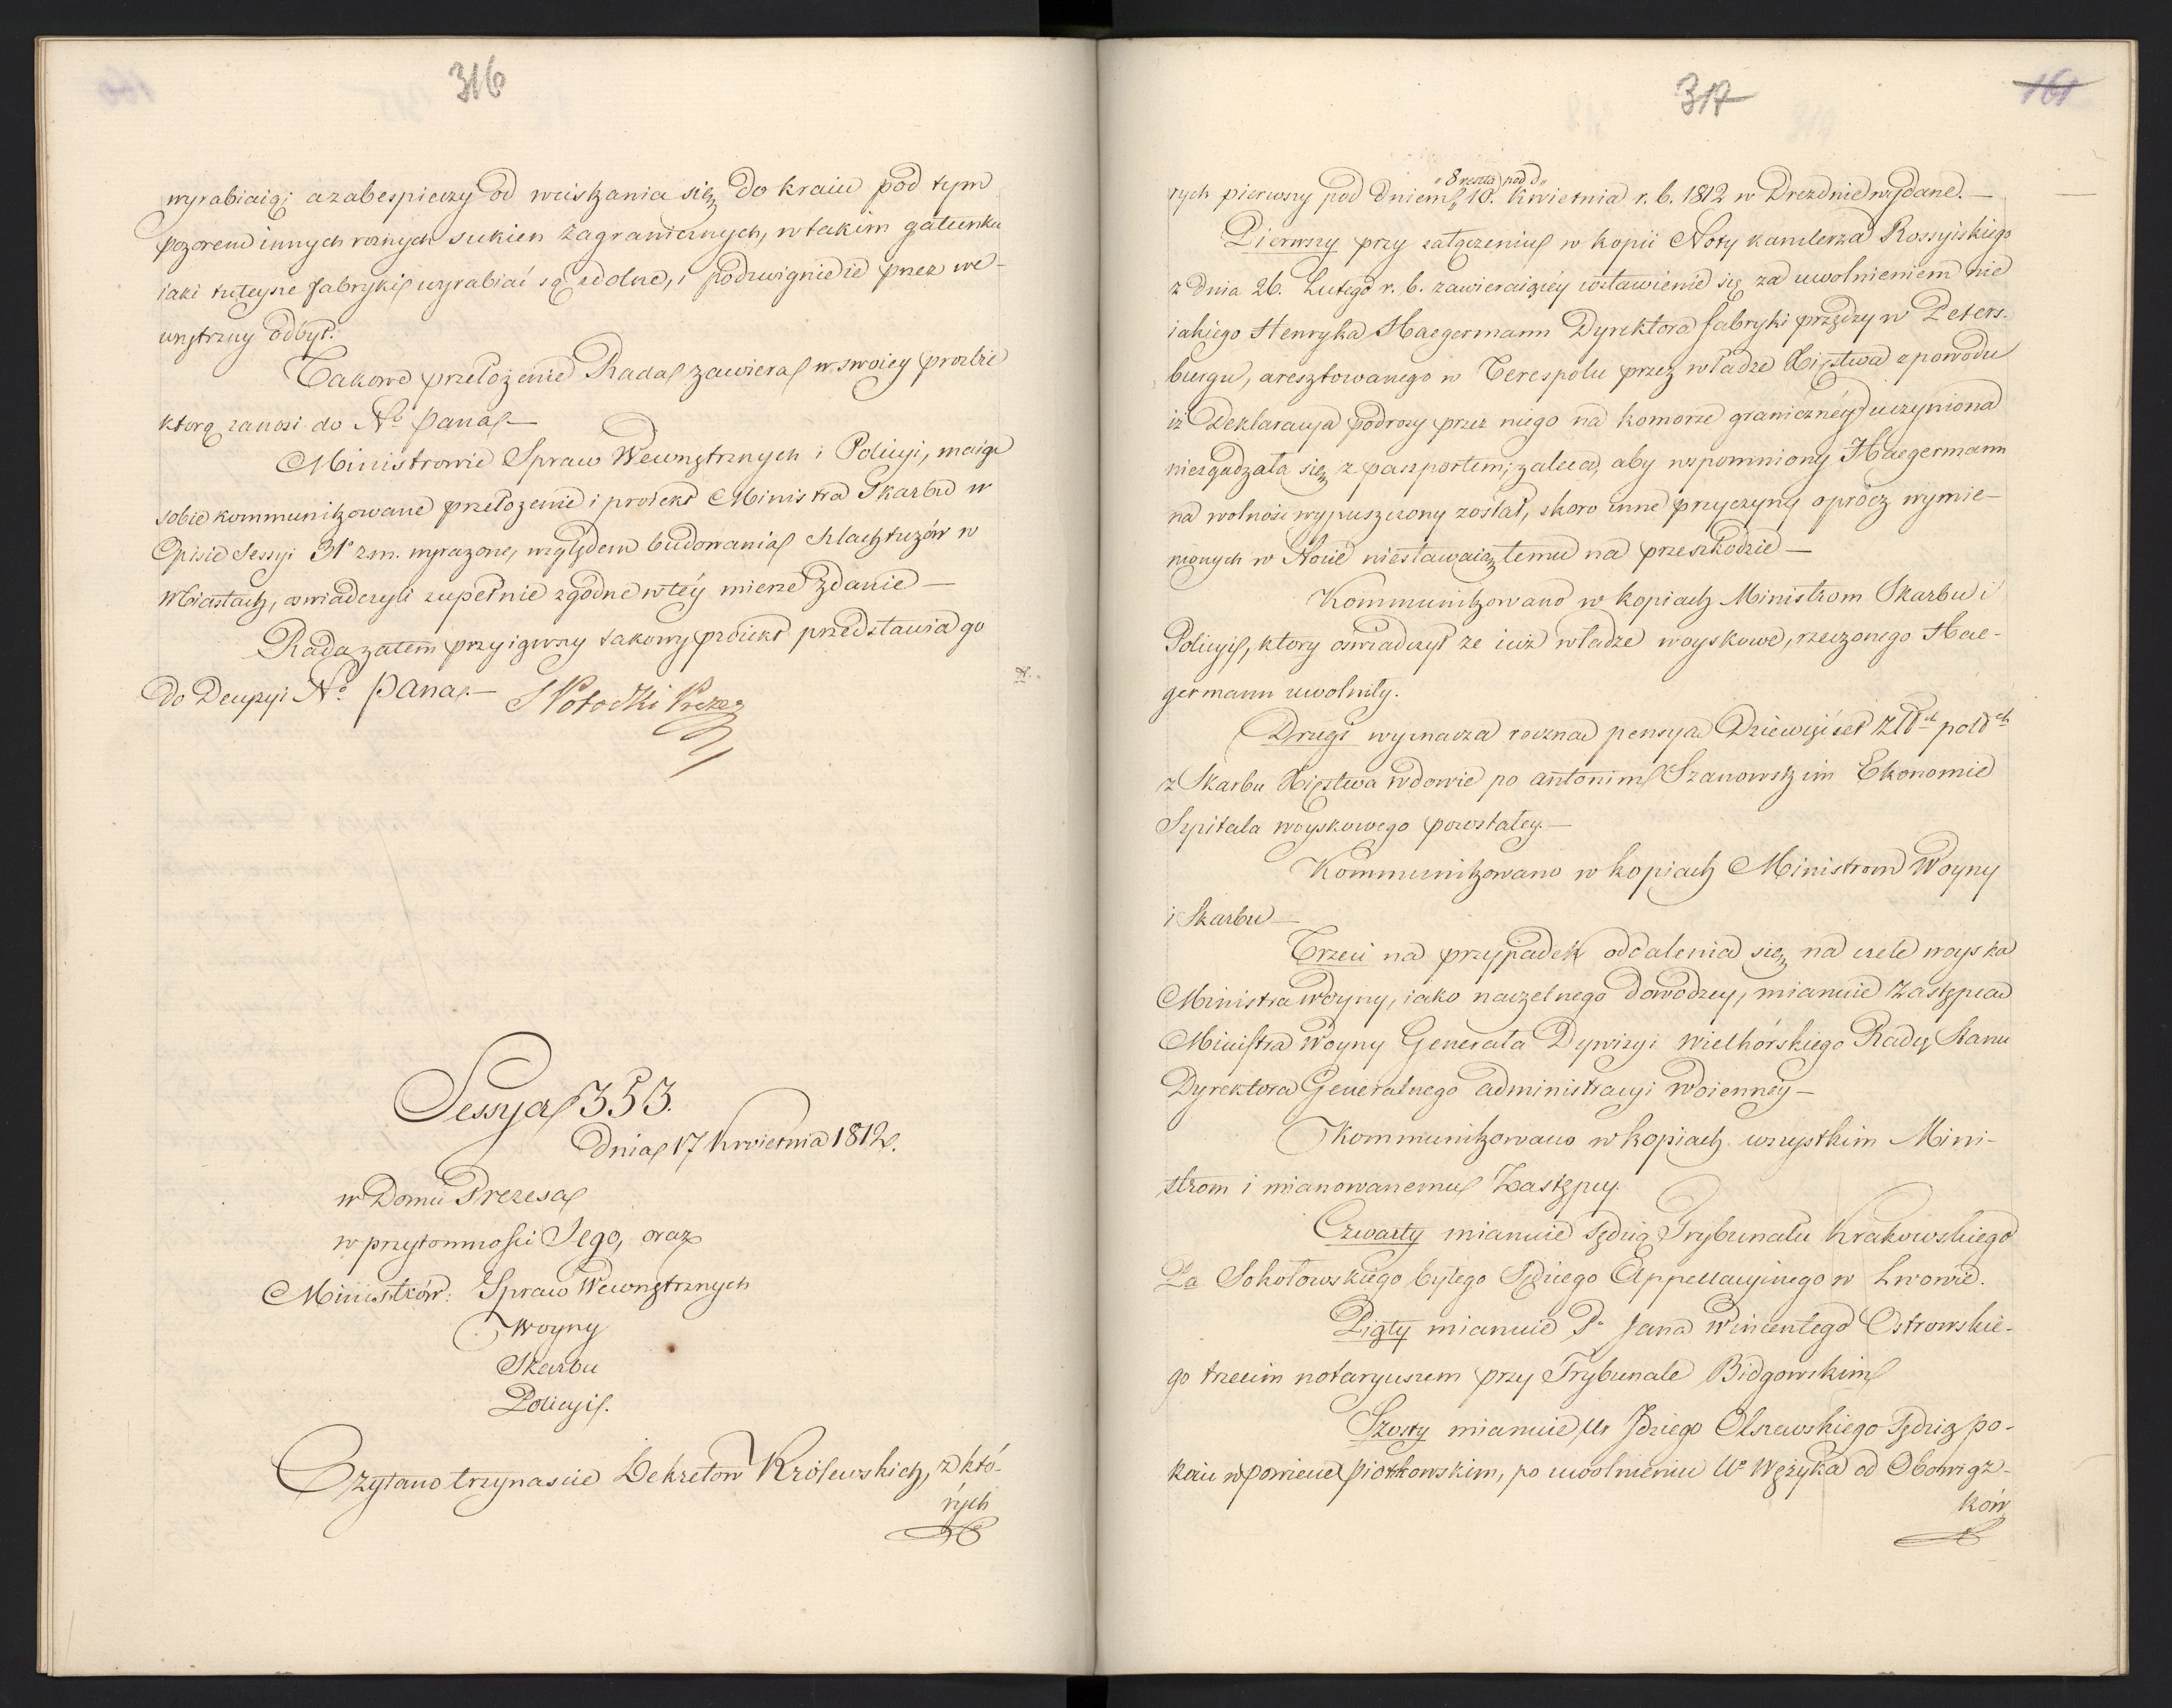 316
wyrabiaią; a zabespieczy od wciskania się do kraiu pod tym
pozorem innych roznych sukien zagranicznych, w takim gatunku
iaki tuteysze fabryki wyrabiać są zdolne, i podzwignienie przez we-
wnętrzny odbyt.
Takowe przełożenie Rada zawiera w swoiey prozbie
ktorą zanosi do No Pana —
Ministrowie Spraw Wewnętrznych i Policyi, maiąc
sobie kommunikowane przełożenie i proiekt Ministra Skarbu w
Opisie Sessyi 31a z.m. wyrażone, względem budowania Szlachtuzów w
Miastach, oswiadczyli zupełnie zgodne w téy mierze zdanie —
Rada zatem przyiąwszy takowy proiekt przedstawia go
do Decyzyi No Pana. — S Potocki Prezes
Sessya 353.
Dnia 17 Kwietnia 1812.
w Domu Prezesa
w przytomności Jego, oraz
Ministrów: Spraw Wewnętrznych
Woyny
Skarbu
Policyi.
Czytano trzynascie Dekretów Królewskich, z któ-
rych
317
161
„8 reszta pod d„
rych pierwszy pod dniem 10. Kwietnia r. b. 1812 w Dreznie wydane. —
Pierwszy przy załączeniu w kopii Noty kanclerza Rossyiskiego
z dnia 26. Lutego r. b. zawieraiącéy wstawienie się za uwolnieniem nie
iakiego Henryka Haegermann Dyrektora fabryki przędzy w Peters-
burgu, aresztowanego w Terespolu przez władze Xięstwa z powodu
iż Deklaracya podrozy przez niego na komorze granicznéy uczyniona
niezgadzała się z paszportem; zaleca, aby wspomniony Haegermann
na wolność wypuszczony został, skoro inne przyczyny oprócz wymie-
nionych w Nocie niestawaią temu na przeszkodzie —
Kommunikowano w kopiach Ministrom Skarbu i
Policyi, ktory oswiadczył ze iuż władze woyskowe, rzeczonego Hae-
germann uwolniły.
Drugi wyznacza roczna pensya Dziewięćset Złch polch
z Skarbu Xięstwa wdowie po Antonim Szanowskim Ekonomie
Szpitala woyskowego pozostałey. —
Kommunikowano w kopiach Ministrom Woyny
i Skarbu —
Trzeci na przypadek oddalenia się na czele woyska
Ministra Woyny, iako naczelnego dowodzcy, mianuie Zastępca
Ministra Woyny Generała Dywizyi Wielhórskiego Radcę Stanu
Dyrektora Generalnego administracyi Woienney —
Kommunikowano w kopiach wszystkim Mini-
strom i mianowanemu Zastępcy
Czwarty mianuie Sędzią Trybunału Krakowskiego
Pa Sokołowskiego byłego Sędziego Appellacyinego w Lwowie.
Piąty mianuie P. Jana Wincentego Ostrowskie-
go trzecim notaryuszem przy Trybunale Bidgowskim
Szosty mianuie Ur Jdziego Olszewskiego Sędzią po-
koiu w powiecie Piotrkowskim, po uwolnieniu Uo Wężyka od Obowiąz-
ków